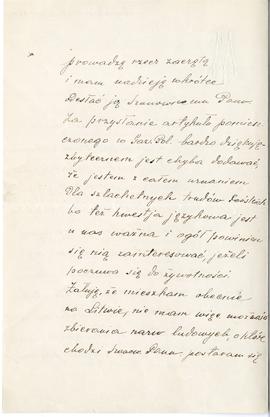 prowadzę rzecz zaczętą
i mam nadzieję wkrótce
Posłać ją Szanownemu Panu
Za przysłanie artykułu pomiesz-
czonego w Gaz. Pol. bardzo dziękuję
zbytecznem jest chyba dodawać,
że jestem z całem uznaniem
dla szlachetnych trudów Pańskich
bo też kwestja językowa jest
u nas ważna i ogół powinien
się nią zainteresować, jeżeli
poczuwa się do żywotności
Żałuję, że mieszkam obecnie
na Litwie, nie mam więc możności
zbierania nazw ludowych, o które
chodzi Szan. Panu, postaram się